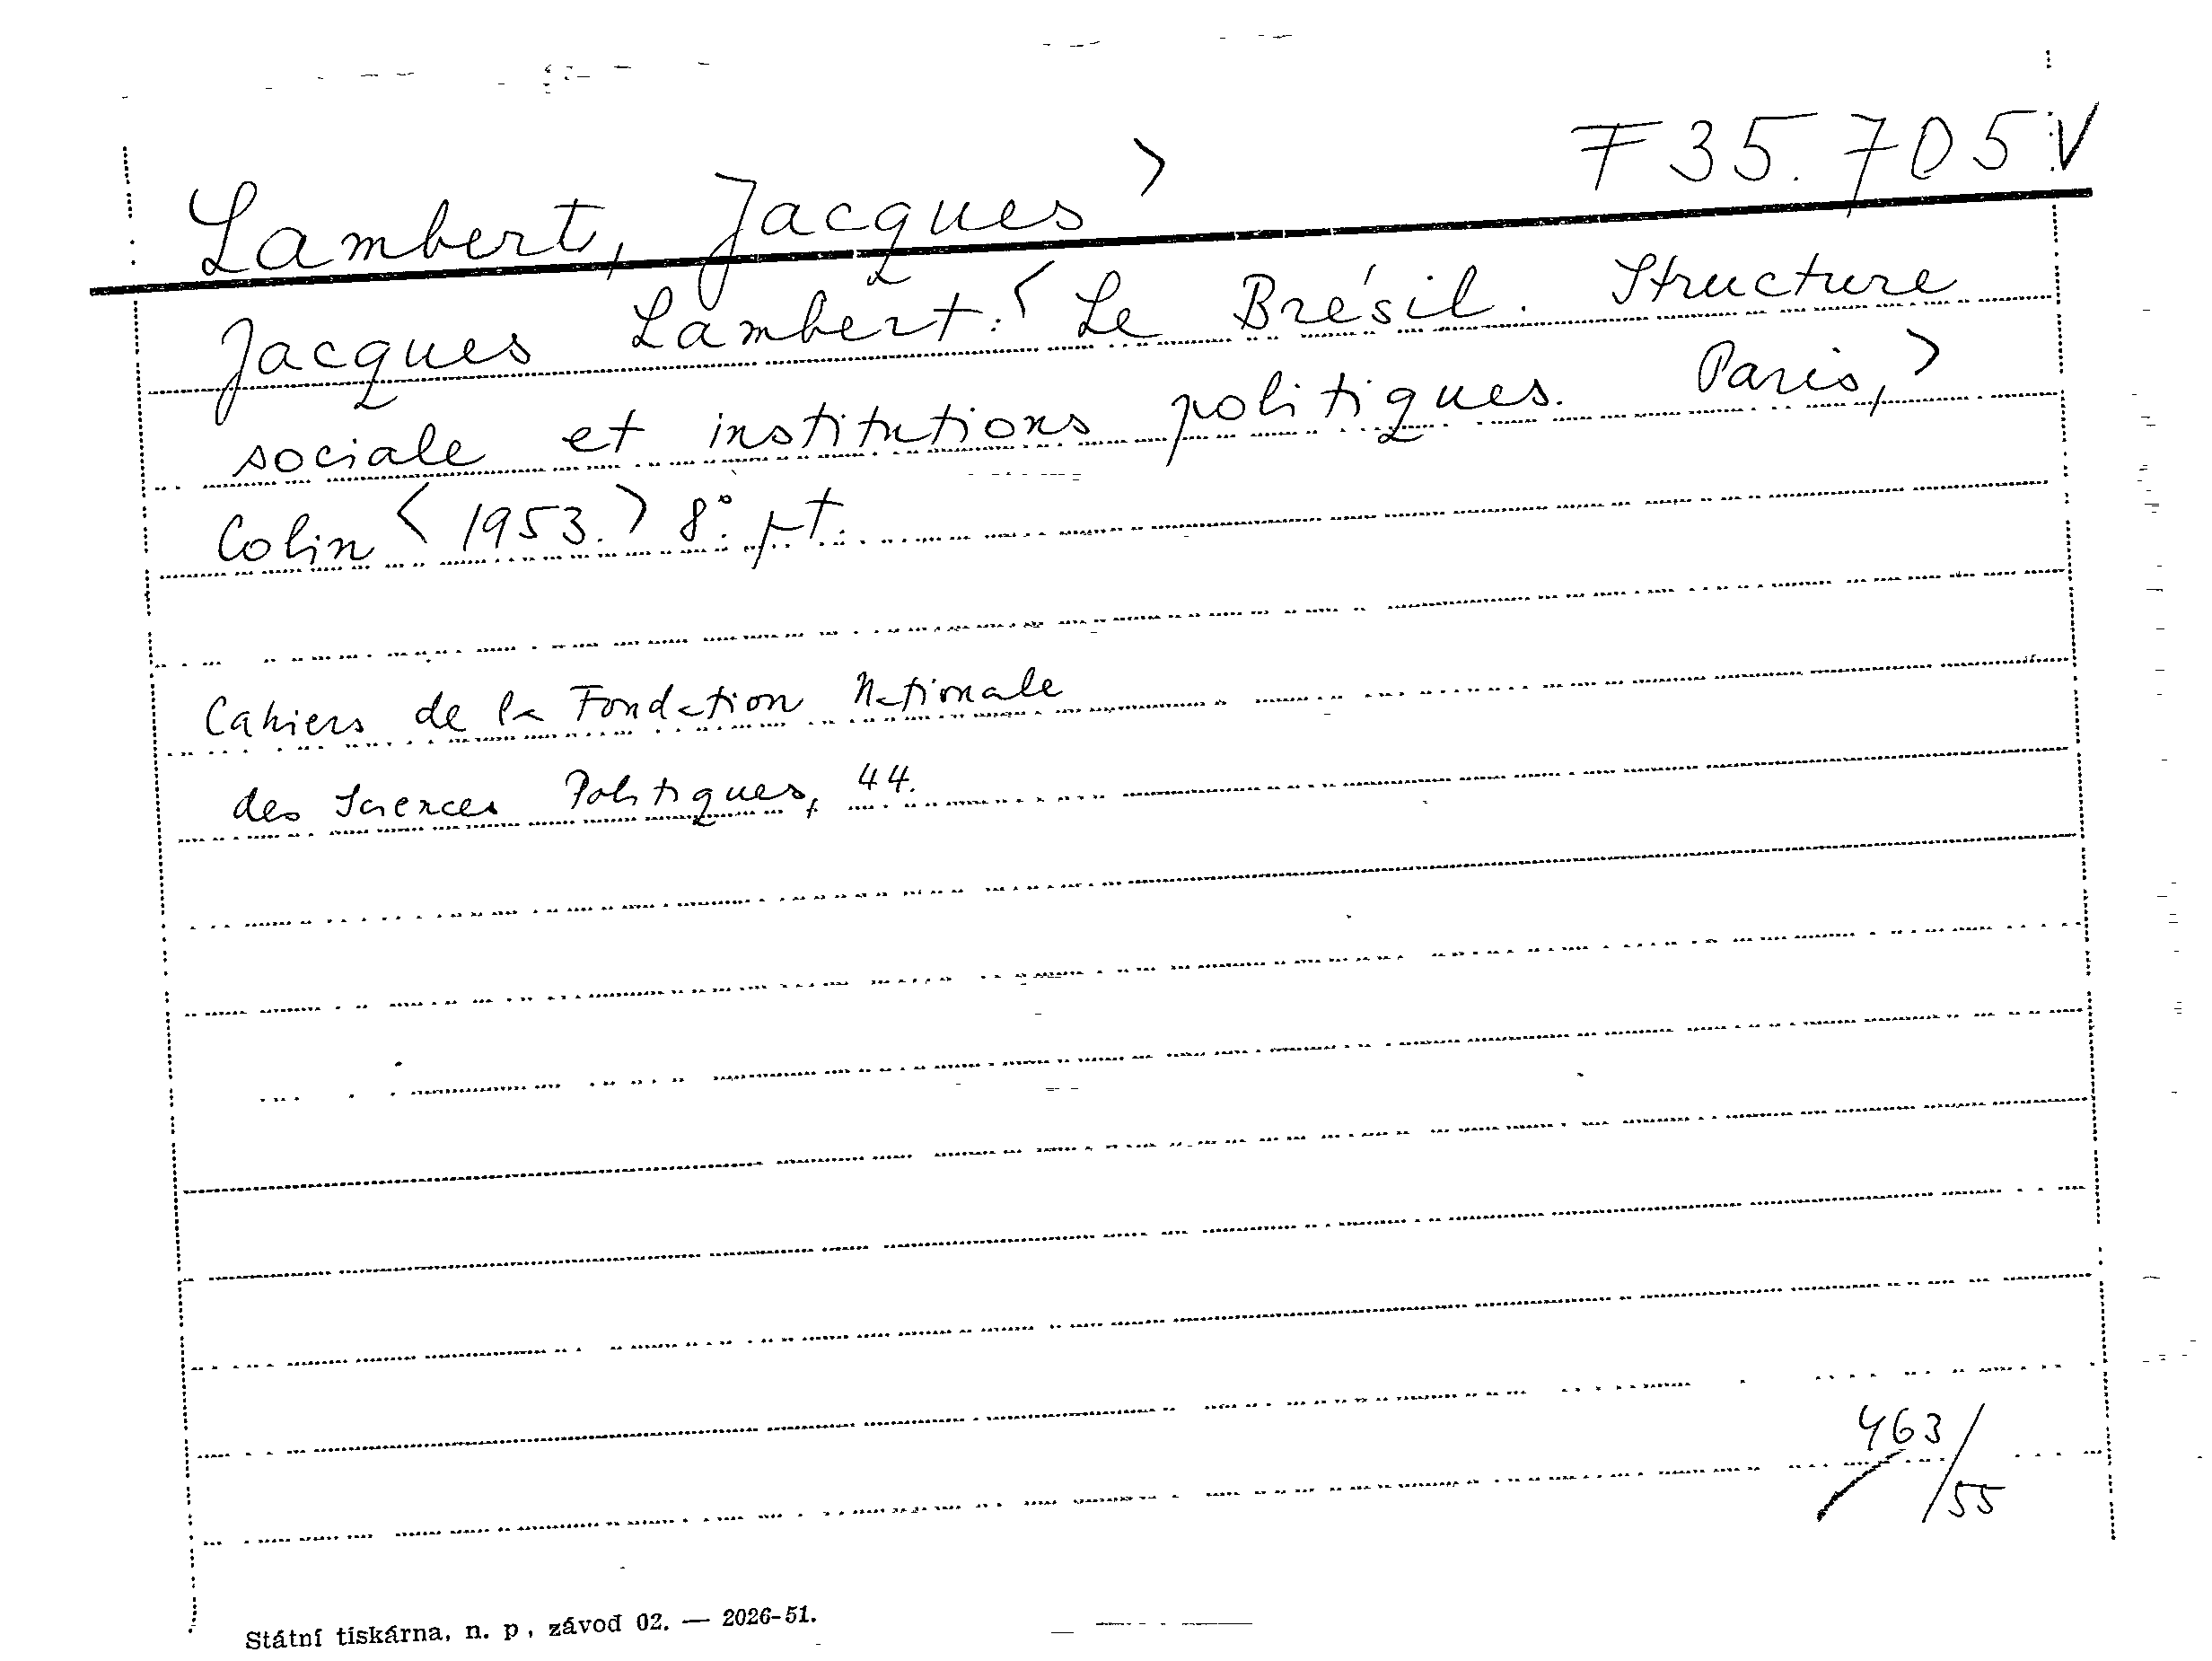 F 35.705 V
Lambert, Jacques >
Jacques Lambert: < Le Brésil. Structure
sociale et institutions politiques. Paris, >
Colin < 1953. > 8°. pt.
Cahiers de la Fondation Nationale
des Sciences Politiques, 44.
463/55
Státní tiskárna, n. p., závod 02. — 2026-51.